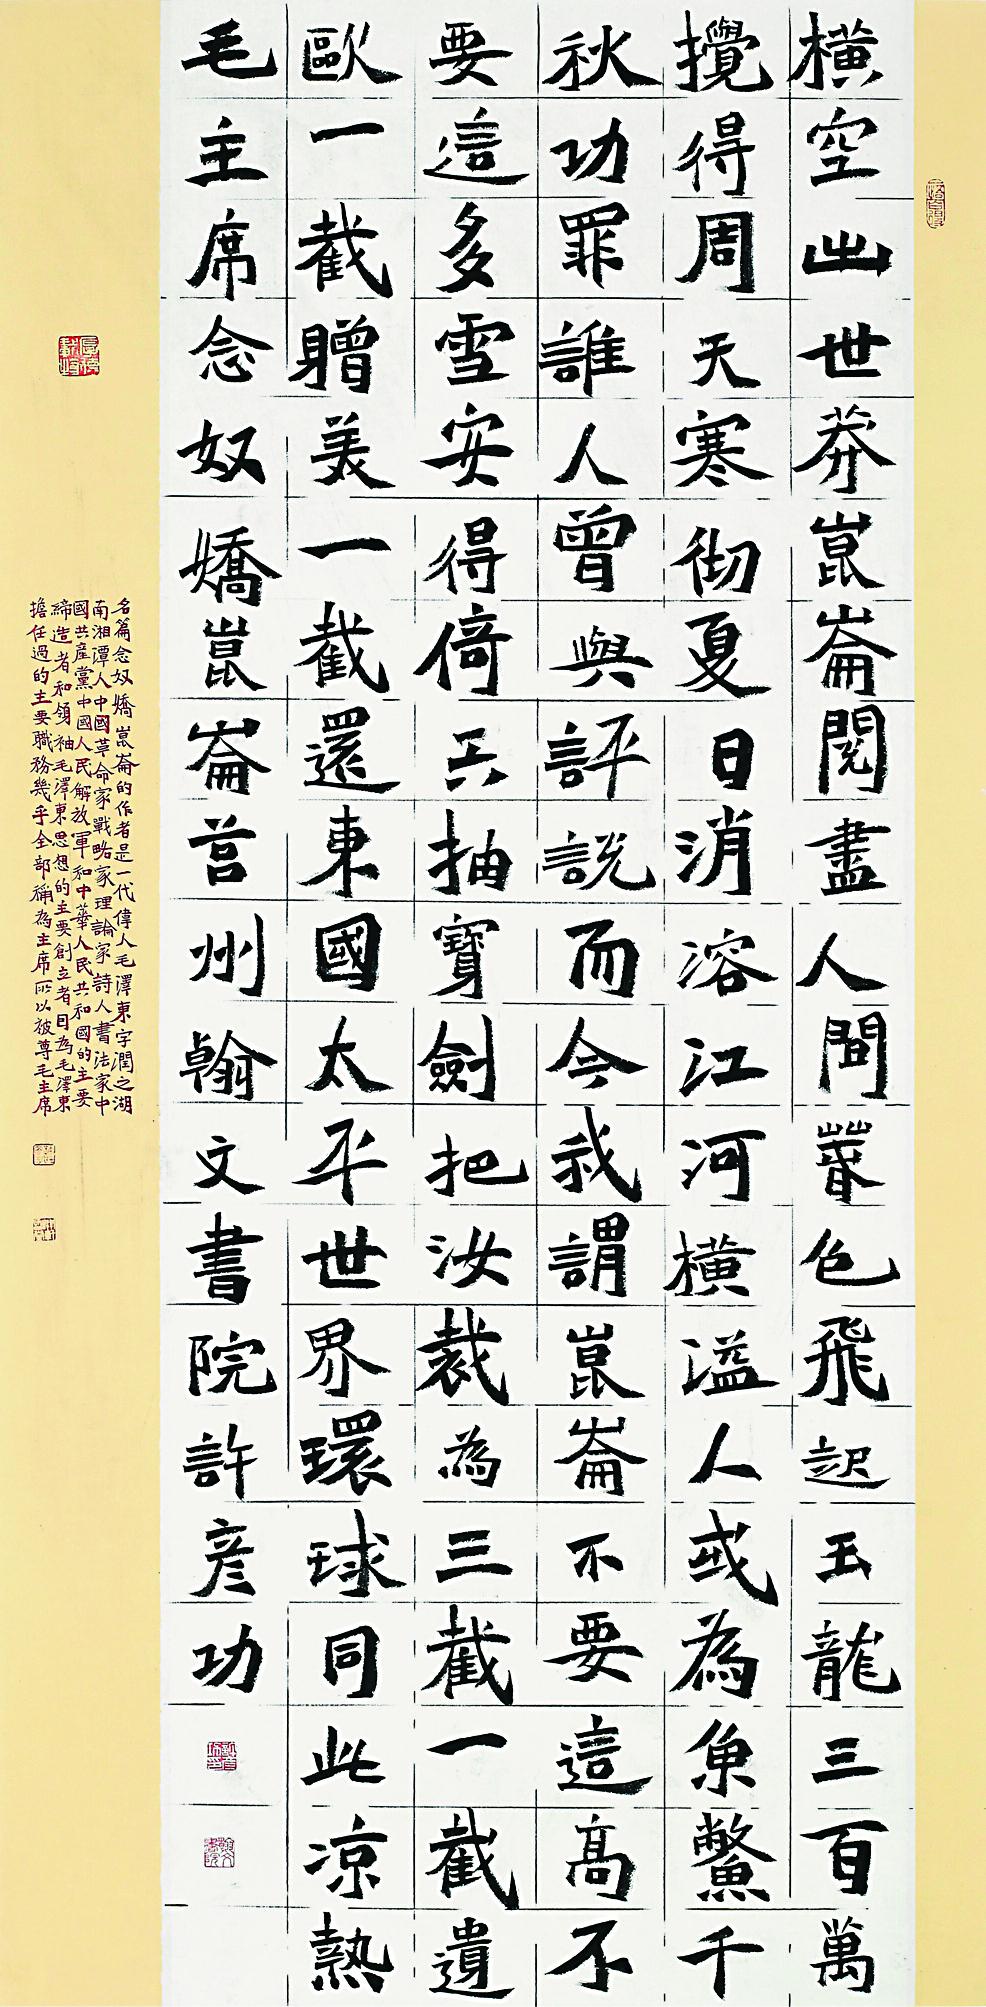 橫空出世莽崑崙閱盡人間萅色飛起玉龍三百萬
攪得周天寒彻夏日消溶江河橫溢人或為魚鱉千
秋功罪誰人曾與評說而今我謂崑崙不要這高不
要這多雪安得倚天抽寶劍把汝裁為三截一截遺
歐一截贈美一截還東國太平世界環球同此凉熱
毛主席念奴嬌崑崙莒州翰文書院許彥功
名篇念奴嬌崑崙的作者是一代偉人毛澤東字潤之湖
南湘潭人中國革命家戰略家理論家詩人書法家中
國共產黨中國人民解放軍和中華人民共和國的主要
締造者和領袖毛澤東思想的主要創立者因為毛澤東
擔任過的主要職務幾乎全部稱為主席所以被尊毛主席